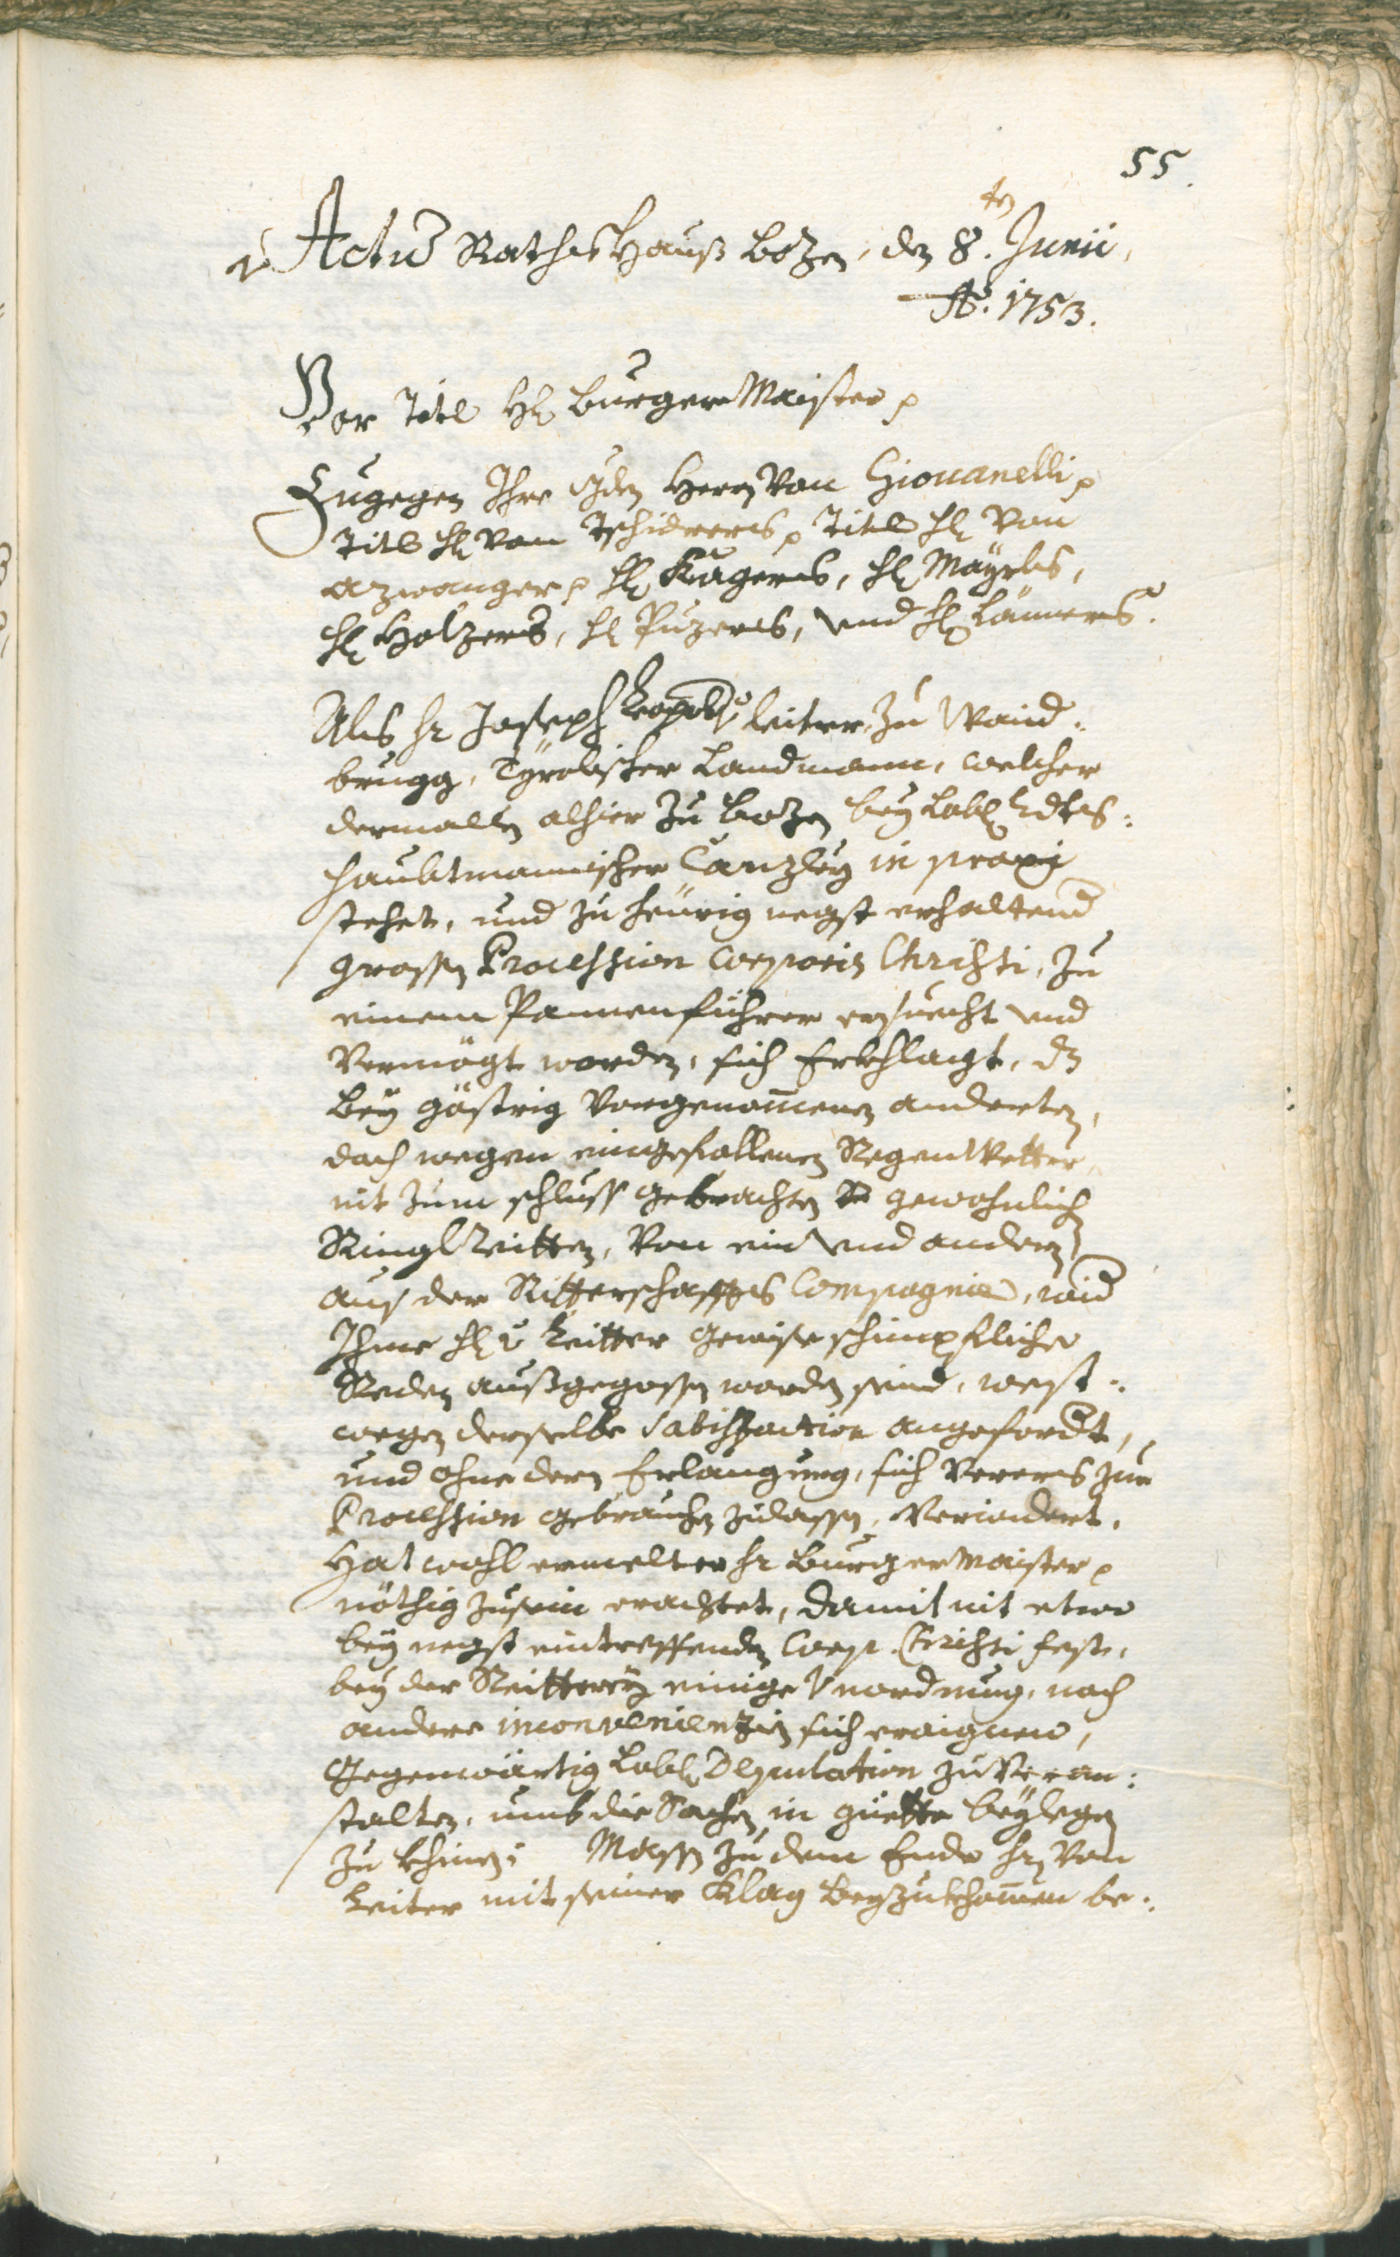 55.
Actũ Rathshauß bozen, den 8.ten Junii,
Ao. 1753.
Vor Titl H: burgerMaister p
Zugegen Ihro Gden Herrn Von Giovanelli p
Titl H: von Tschidrers p Titl H: von
azwanger p H: Kagers, H: Mayrls,
H: Holzers, H: Puzers, und H: Lämers.
Als Hr Joseph Leopold leiter, zu Waid:
brugg, Tyrolischer Landmann, welcher
dermallen alhier zu bozen bey Lobl: Ldts:
haubtmannischer Canzley in praxi
stehet, und zu heurig negst erhaltend
grossen Procession Corporis Christi, zu
einem Pannenführer ersuecht und
vermögt worden, sich Erkhlagt, dz
bey göstrig vorgenommenen anderten,
doch wegen eingefallenen RegenWetter,
nit zum schluss gebrachten gewohnlich
RinglReitten, von ein und andern
aus der Ritterschaffts Compagnie, wid
Ihme H: v Leitter gewise schimpfliche
Reden außgegossen worden seind, west:
wegen derselbe Satisfaction angefordt,
und ohne dern Erlangung, sich verers zur
Procession gebrauchen zulassen, Verwidert,
Hat wohl ermelter Hr burgermaister p
nöthig zusein erachtet, damit nit etwo
bey negst eintreffenden Corp. Christi fest,
bey der Reitterey einige Unordnung, noch
andere inconvenienzien sich eraignen,
Gegenwärtig Lobl: Deputation zu veran:
stalten, umb die Sachen in güette beylegen
zu khinen; Massen zu dem Ende Hr: von
Leiter mit seiner Klag beyzukhommen be: